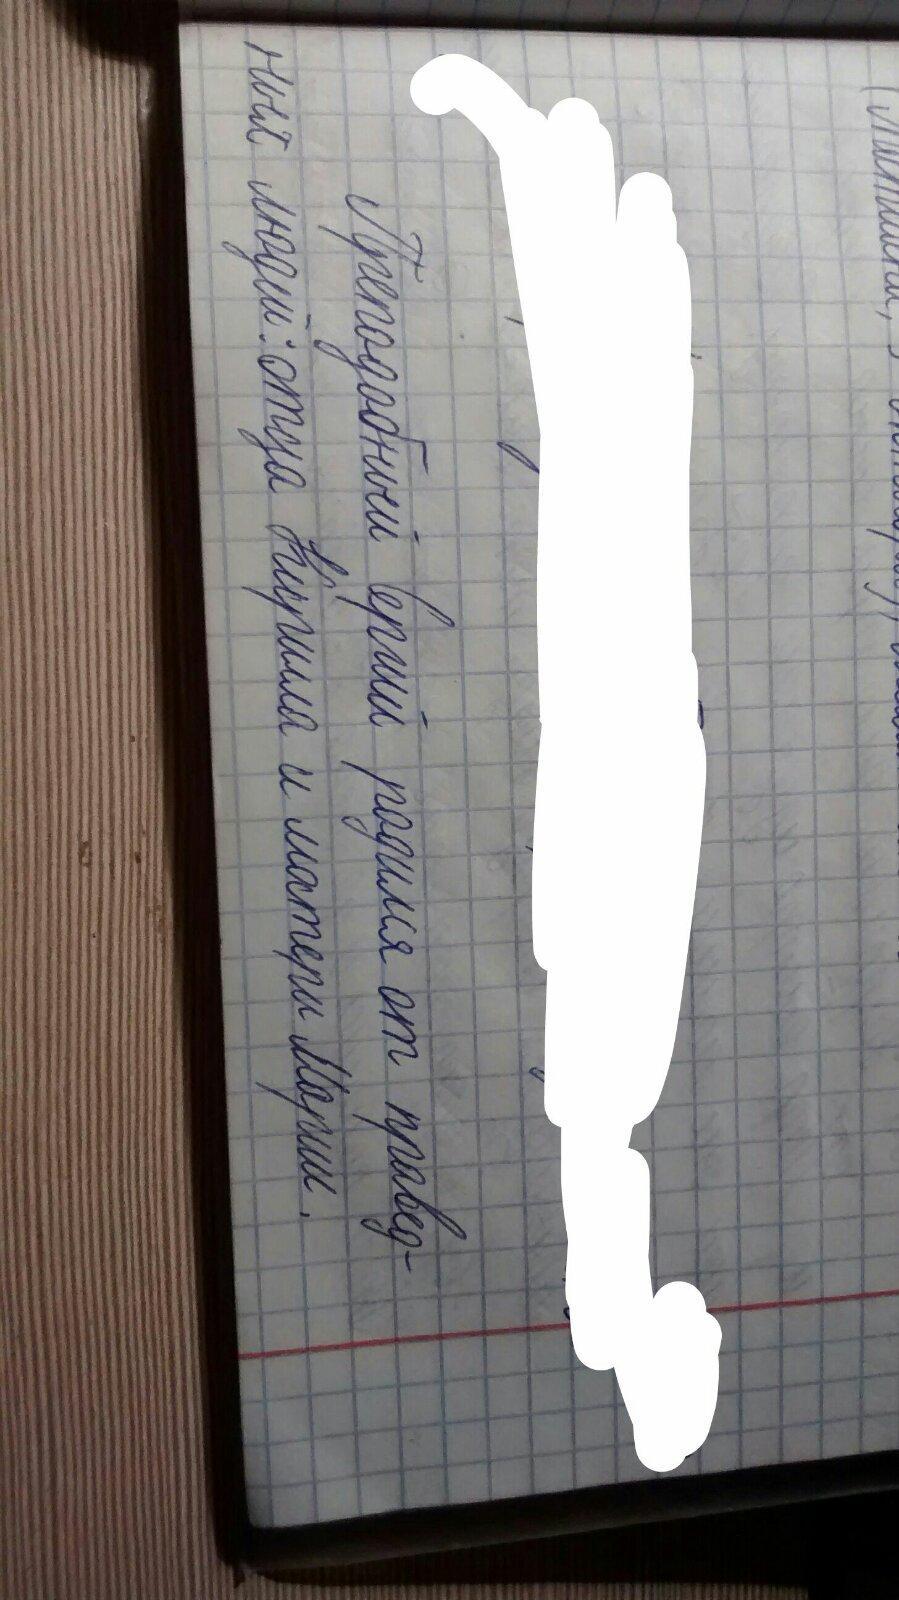 Преподобный Сергий родился от правед-
ных людей: отца Кирилла и матери Марии.